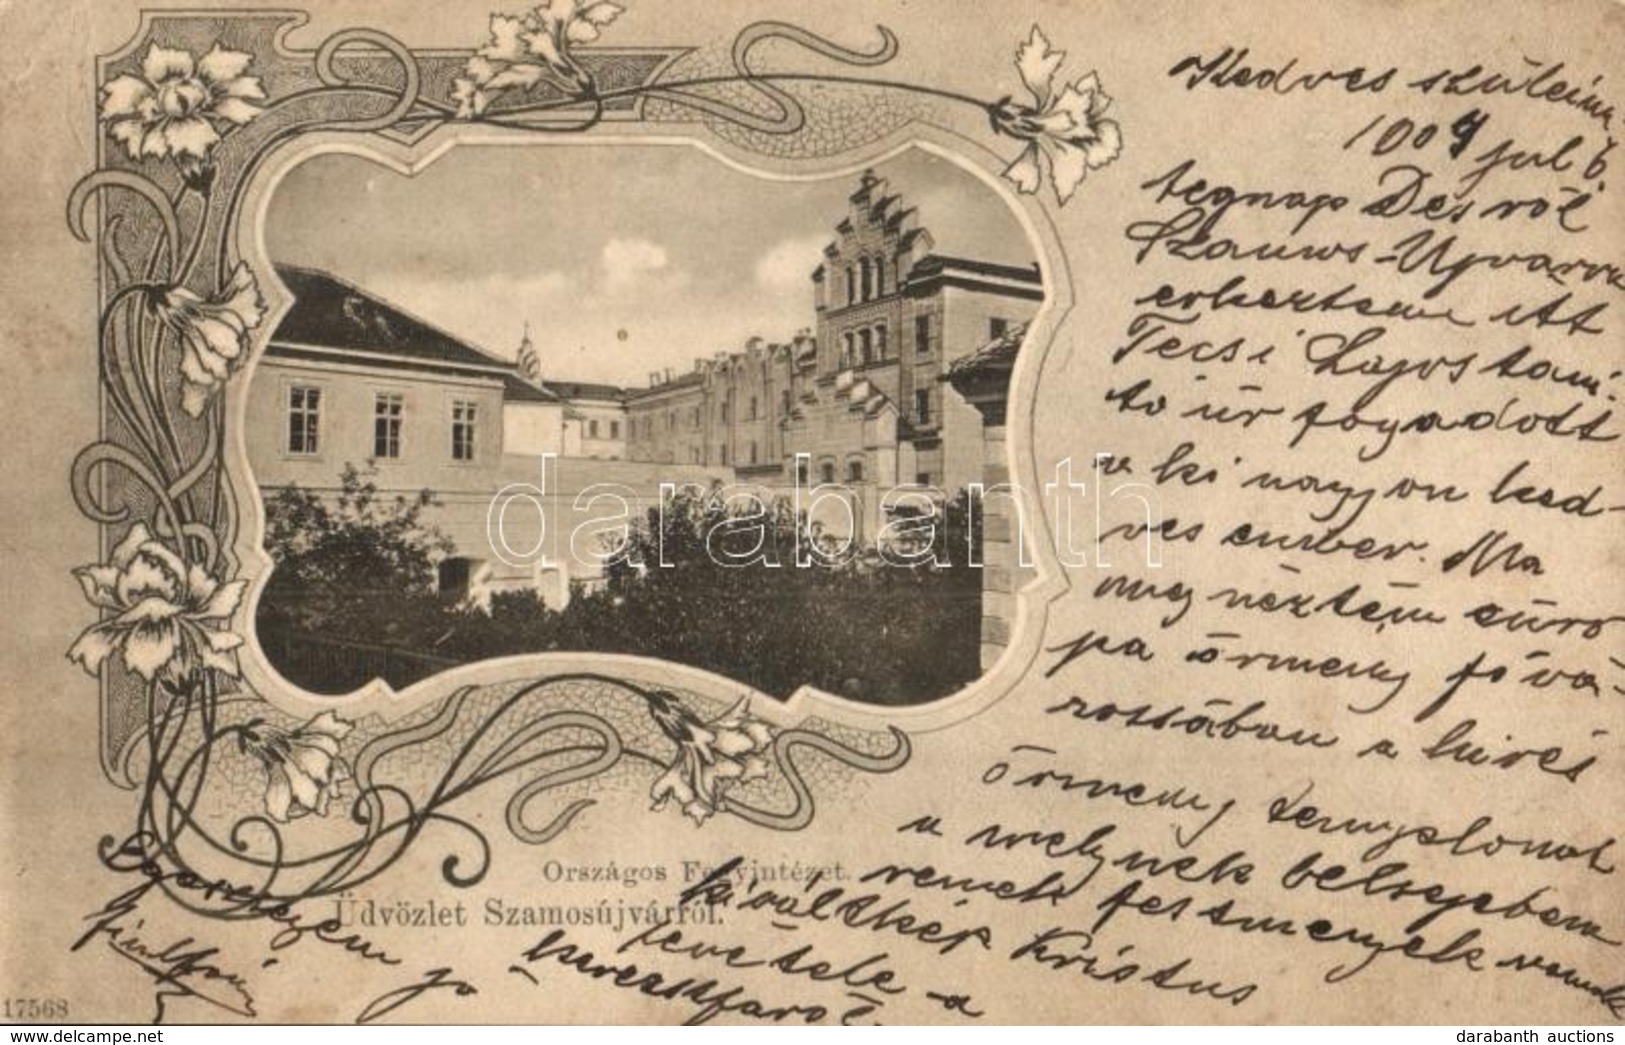 Kedves szüleim
1904 jul 6.
tegnap Desröl
Szamos-Ujvárra
erkeztem itt
Tecsi Lajos tani-
to úr fogadott
ki nagyon ked-
ves ember. Ma
megnéztem euro
pa örmeny fövá-
rossában a hires
örmeny templomot
a melynek belsejeben
remek festmenyek vannak
kiváltkép Kristus
levetele a
keresztfárol.
jo
Országos Fegyintézet.
Üdvözlet Szamosújvárról.
17568
darabanth
darabanth auctions